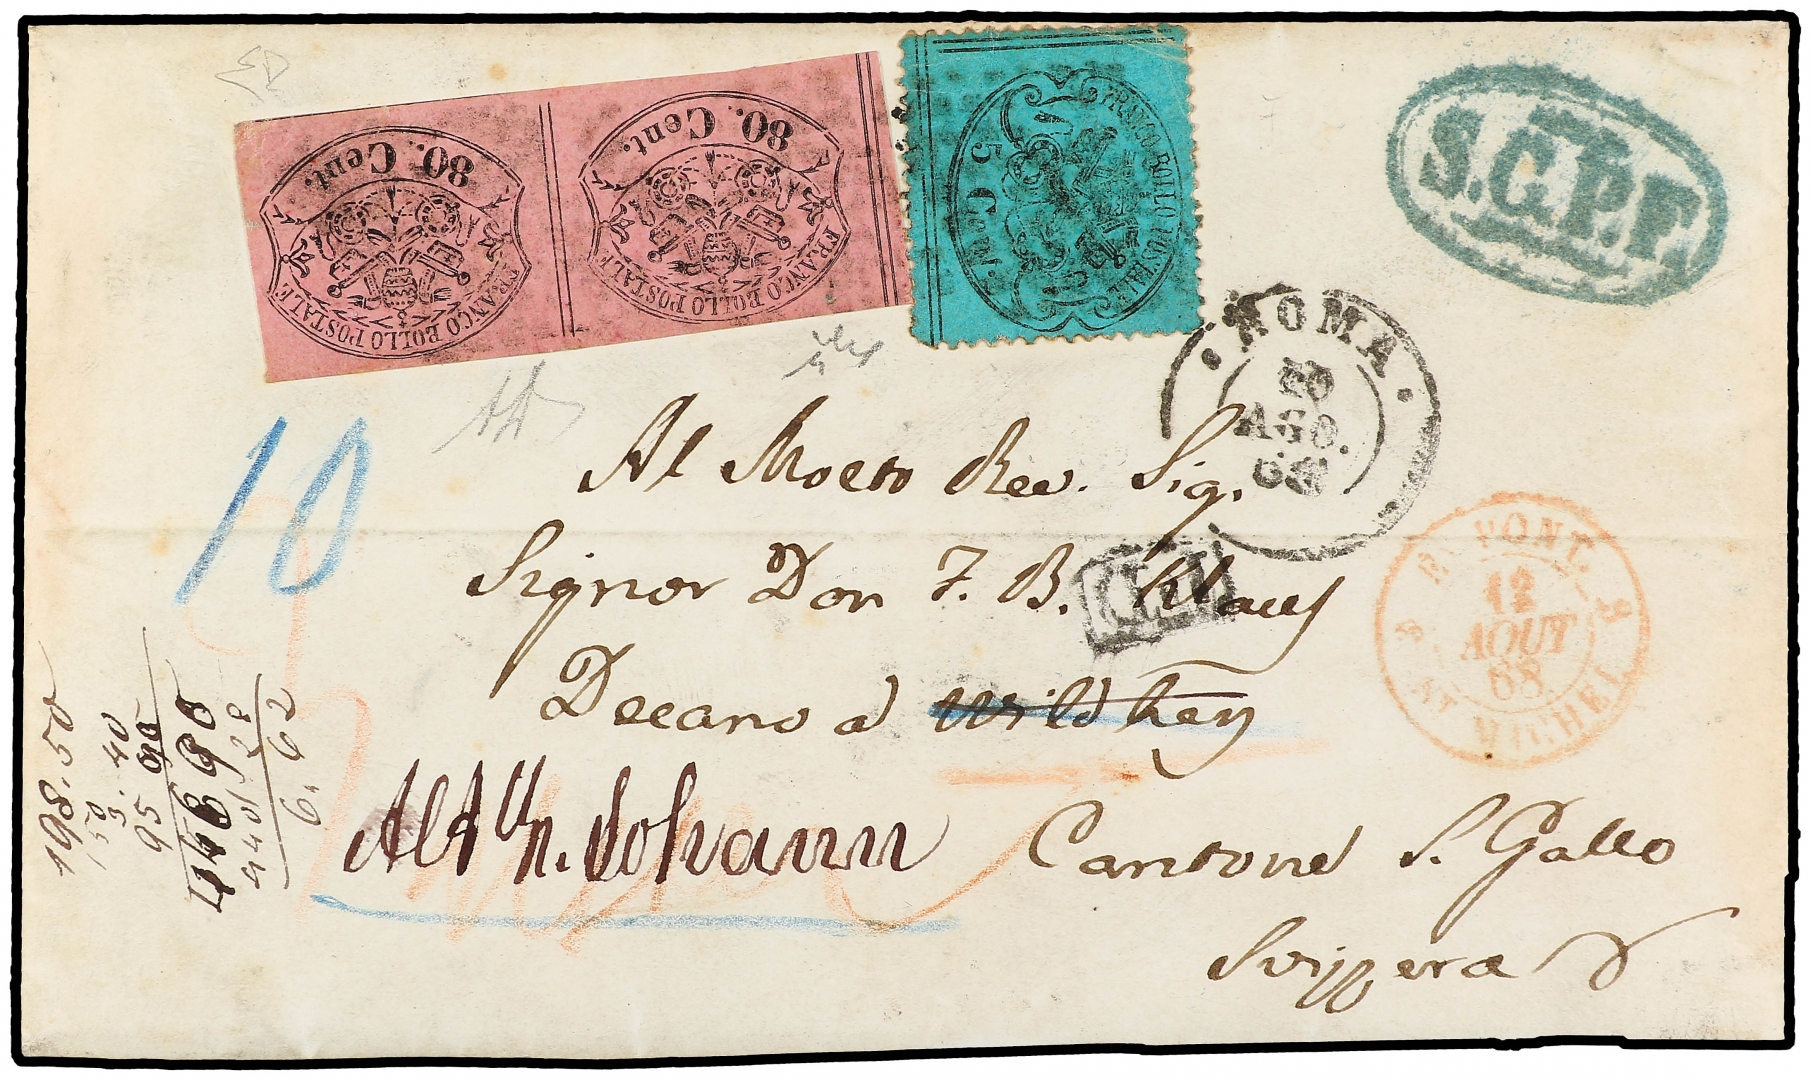 80. Cent.
FRANCO BOLLO POSTALE
80. Cent.
FRANCO BOLLO POSTALE
FRANCO BOLLO POSTALE
5 CENT.
S.C.P.F.
ROMA
AGO.
68
10
Al Molto Rev. Sig.
Signor Don F. B.
Decano a Wildhen
Alt St. Johann
Cantone S. Gallo
Svizzera
E. PONT.
12
AOUT
68
ST MICHEL
198.50
95
6.62